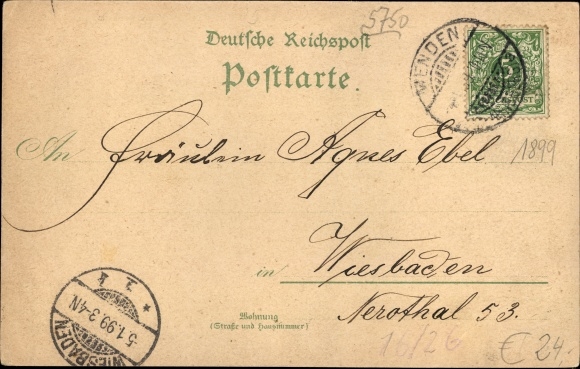 5750
Deutsche Reichspost
Postkarte
MENDEN
An Fräulein Agnes Ebel
1899
in Wiesbaden
Wohnung
(Straße und Hausnummer)
Nerothal 53.
WIESBADEN
5.1.99.3-4N
* 1 *
16/26
€ 24,-